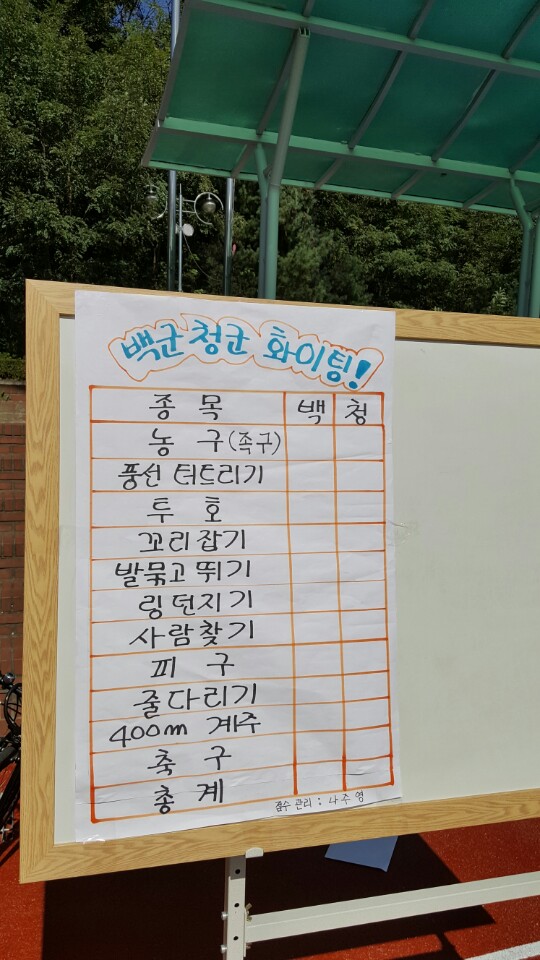 백군 청군 화이팅!
종목 백 청
농구(족구)
풍선 터트리기
투호
꼬리잡기
발묶고 뛰기
링던지기
사람찾기
피구
줄다리기
400m 계주
축구
총계
점수 관리 : 나주영